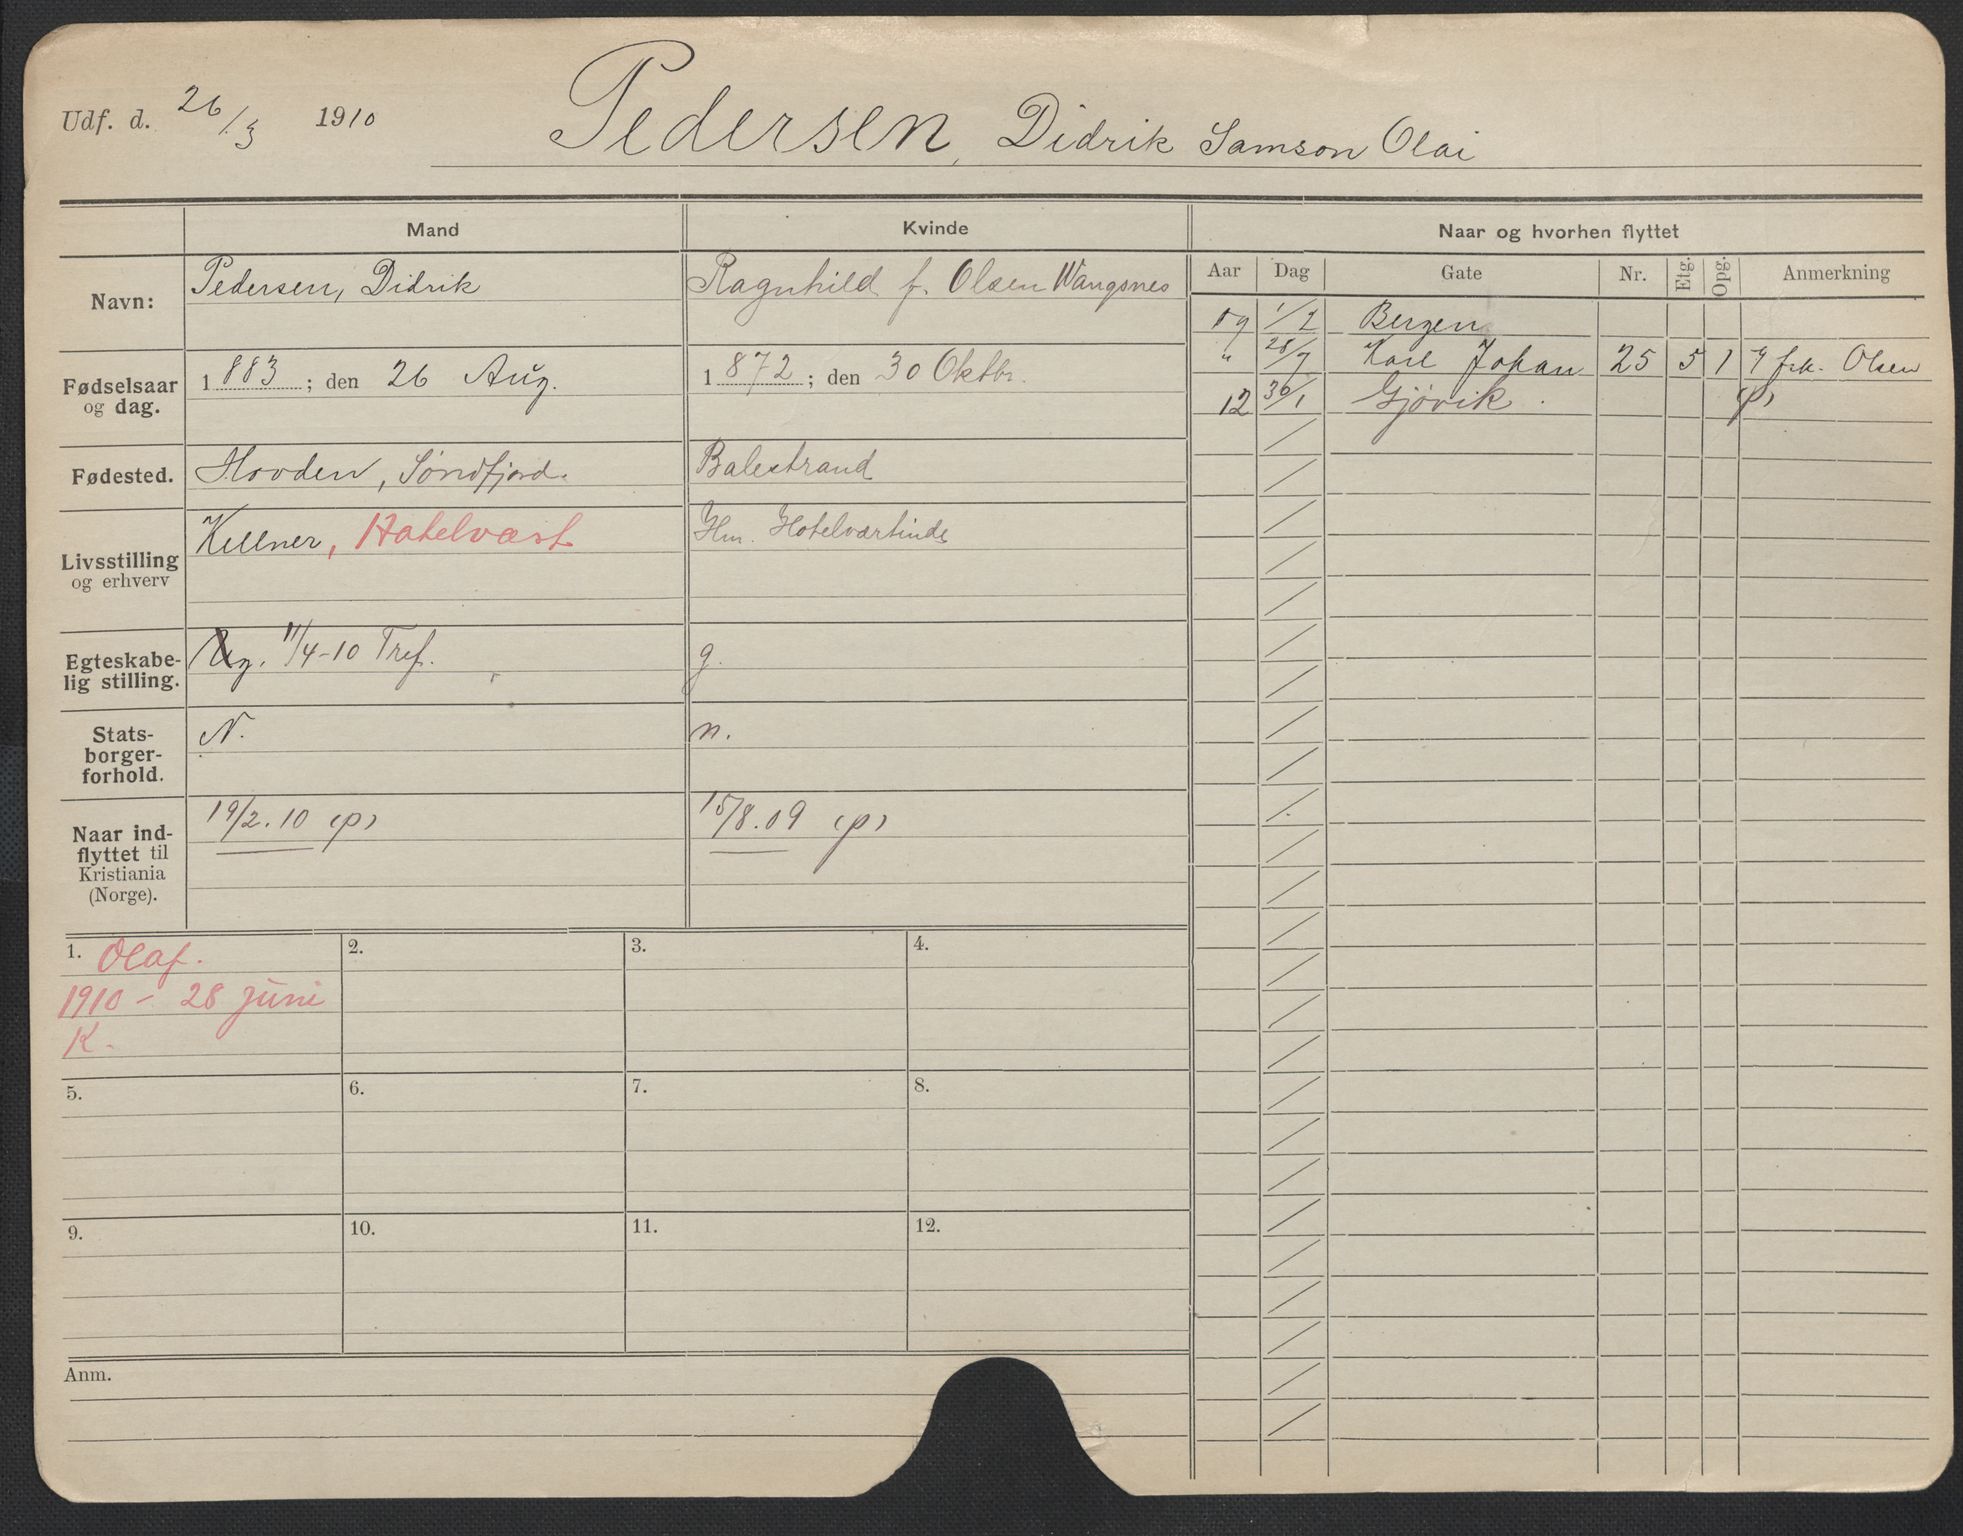 Udf. d. 26/3 1910
Pedersen, Didrik Samson Olai
Mand
Kvinde
Naar og hvorhen flyttet
Aar Dag Gate Nr. Etg. Opg. Anmerkning
Navn:
Pedersen, Didrik
Ragnhild f. Olsen Wangsnes
09 1/2 Bergen
" 28/7 Karl Johan 25 5 1 frk. Olsen
12 30/1 Gjövik (p)
Fødselsaar
og dag.
1883; den 26 Aug.
1872; den 30 Oktbr.
Fødested.
Hovden, Söndfjord.
Balestrand
Livsstilling
og erhverv
Kellner, Hotelvært
Hm. Hotelværtinde
Egteskabe-
lig stilling.
Ug. 11/4-10 Tref.
g.
Stats-
borger-
forhold.
N.
n.
Naar ind-
flyttet til
Kristiania
(Norge).
19/2.10 (p)
15/8.09 (p)
1. Olaf.
1910 - 28 juni
K.
2.
3.
4.
5.
6.
7.
8.
9.
10.
11.
12.
Anm.